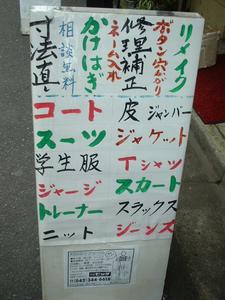 リメイク
ボタン穴かがり
修理補正
ネーム入れ
かけはぎ
相談無料
寸法直し
コート
皮ジャンパー
スーツ
ジャケット
学生服
Tシャツ
ジャージ
スカート
トレーナー
スラックス
ニット
ジーンズ